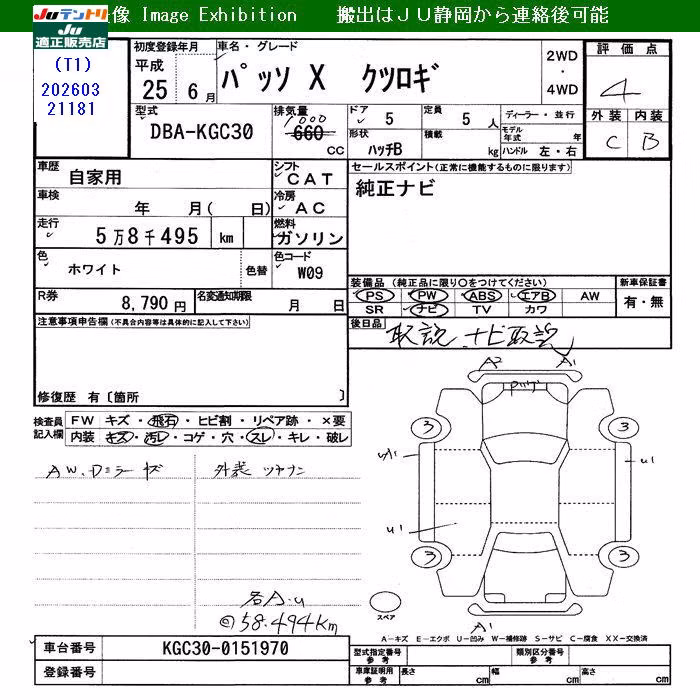 Juテントリ
Ju
適正販売店
像 Image Exhibition 搬出はＪＵ静岡から連絡後可能
(T1)
202603
21181
初度登録年月
平成
25 6 月
車名・グレード
パッソ X クツロギ
2WD
・
4WD
評価点
4
外装 内装
C B
型式
DBA-KGC30
排気量
1000
660 CC
ドア
5
形状
ハッチB
定員
5 人
積載
kg
ディーラー・並行
モデル年式 年
ハンドル 左・右
車歴
自家用
シフト
CAT
車検
年 月( 日)
冷房
AC
走行
5万8千495 km
燃料
ガソリン
色
ホワイト
色替
色コード
W09
R券
8,790 円
名変通知期限
月 日
セールスポイント(正常に機能するものに限ります)
純正ナビ
装備品 (純正品に限り○をつけてください)
PS PW ABS エアB AW
SR ナビ TV カワ
新車保証書
有・無
後日品
取説 ナビ取説
注意事項申告欄(不具合内容等は具体的に記入して下さい)
修復歴 有〔箇所 〕
検査員
記入欄
FW キズ・飛石・ヒビ割・リペア跡・×要
内装 キズ・汚レ・コゲ・穴・スレ・キレ・破レ
AW.Dミラーキズ
外装 ツヤナシ
各A.u
58.494Km
A2 A1
3 3
A1
u1
u1
3 3
A1
スペア
A－キズ E－エクボ U－凹み W－補修跡 S－サビ C－腐食 XX－交換済
車台番号
KGC30-0151970
登録番号
型式指定番号
参考
類別区分番号
参考
車庫証明用
参考
長さ cm
幅 cm
高さ cm